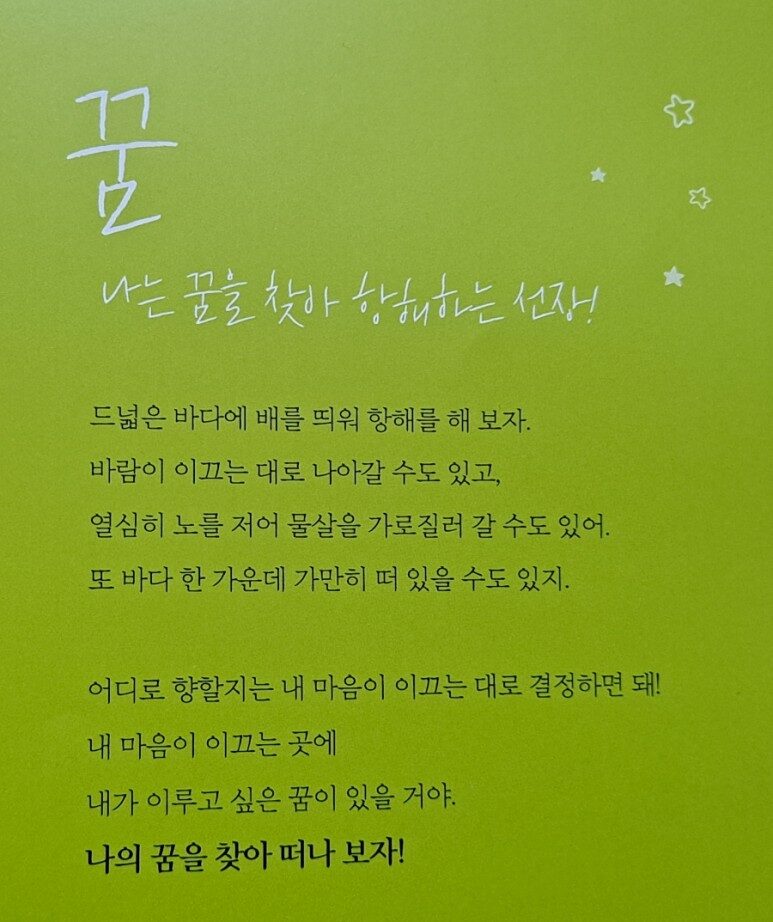 꿈
나는 꿈을 찾아 항해하는 선장!
드넓은 바다에 배를 띄워 항해를 해 보자.
바람이 이끄는 대로 나아갈 수도 있고,
열심히 노를 저어 물살을 가로질러 갈 수도 있어.
또 바다 한 가운데 가만히 떠 있을 수도 있지.
어디로 향할지는 내 마음이 이끄는 대로 결정하면 돼!
내 마음이 이끄는 곳에
내가 이루고 싶은 꿈이 있을 거야.
나의 꿈을 찾아 떠나 보자!